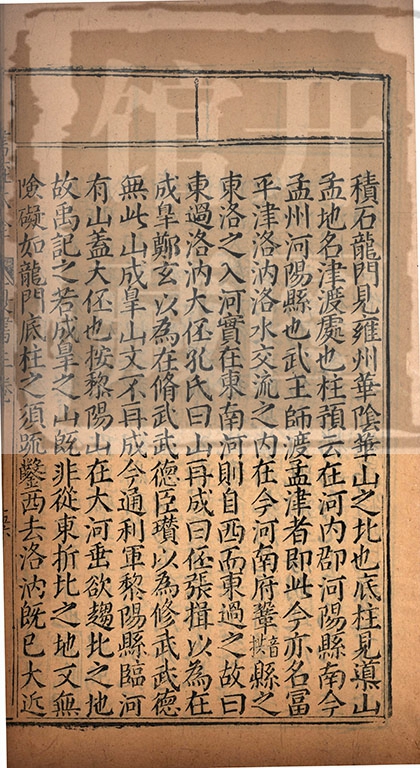 積石龍門見雍州華陰華山之北也底柱見導山
孟地名津渡處也杜預云在河内郡河陽縣南今
孟州河陽縣也武王師渡孟津者即此今亦名冨
平津洛汭洛水交流之内在今河南府鞏音拱縣之
東洛之入河實在東南河則自西而東過之故曰
東過洛汭大伾孔氏曰山再成曰伾張揖以為在
成皐鄭玄以為在脩武武德臣瓚以為修武武德
無此山成皐山又不再成今通利軍黎陽縣臨河
有山蓋大伾也按黎陽山在大河垂欲趨北之地
故禹記之若成皐之山旣非從東折北之地又無
險礙如龍門底柱之須䟽鑿西去洛汭旣已大近